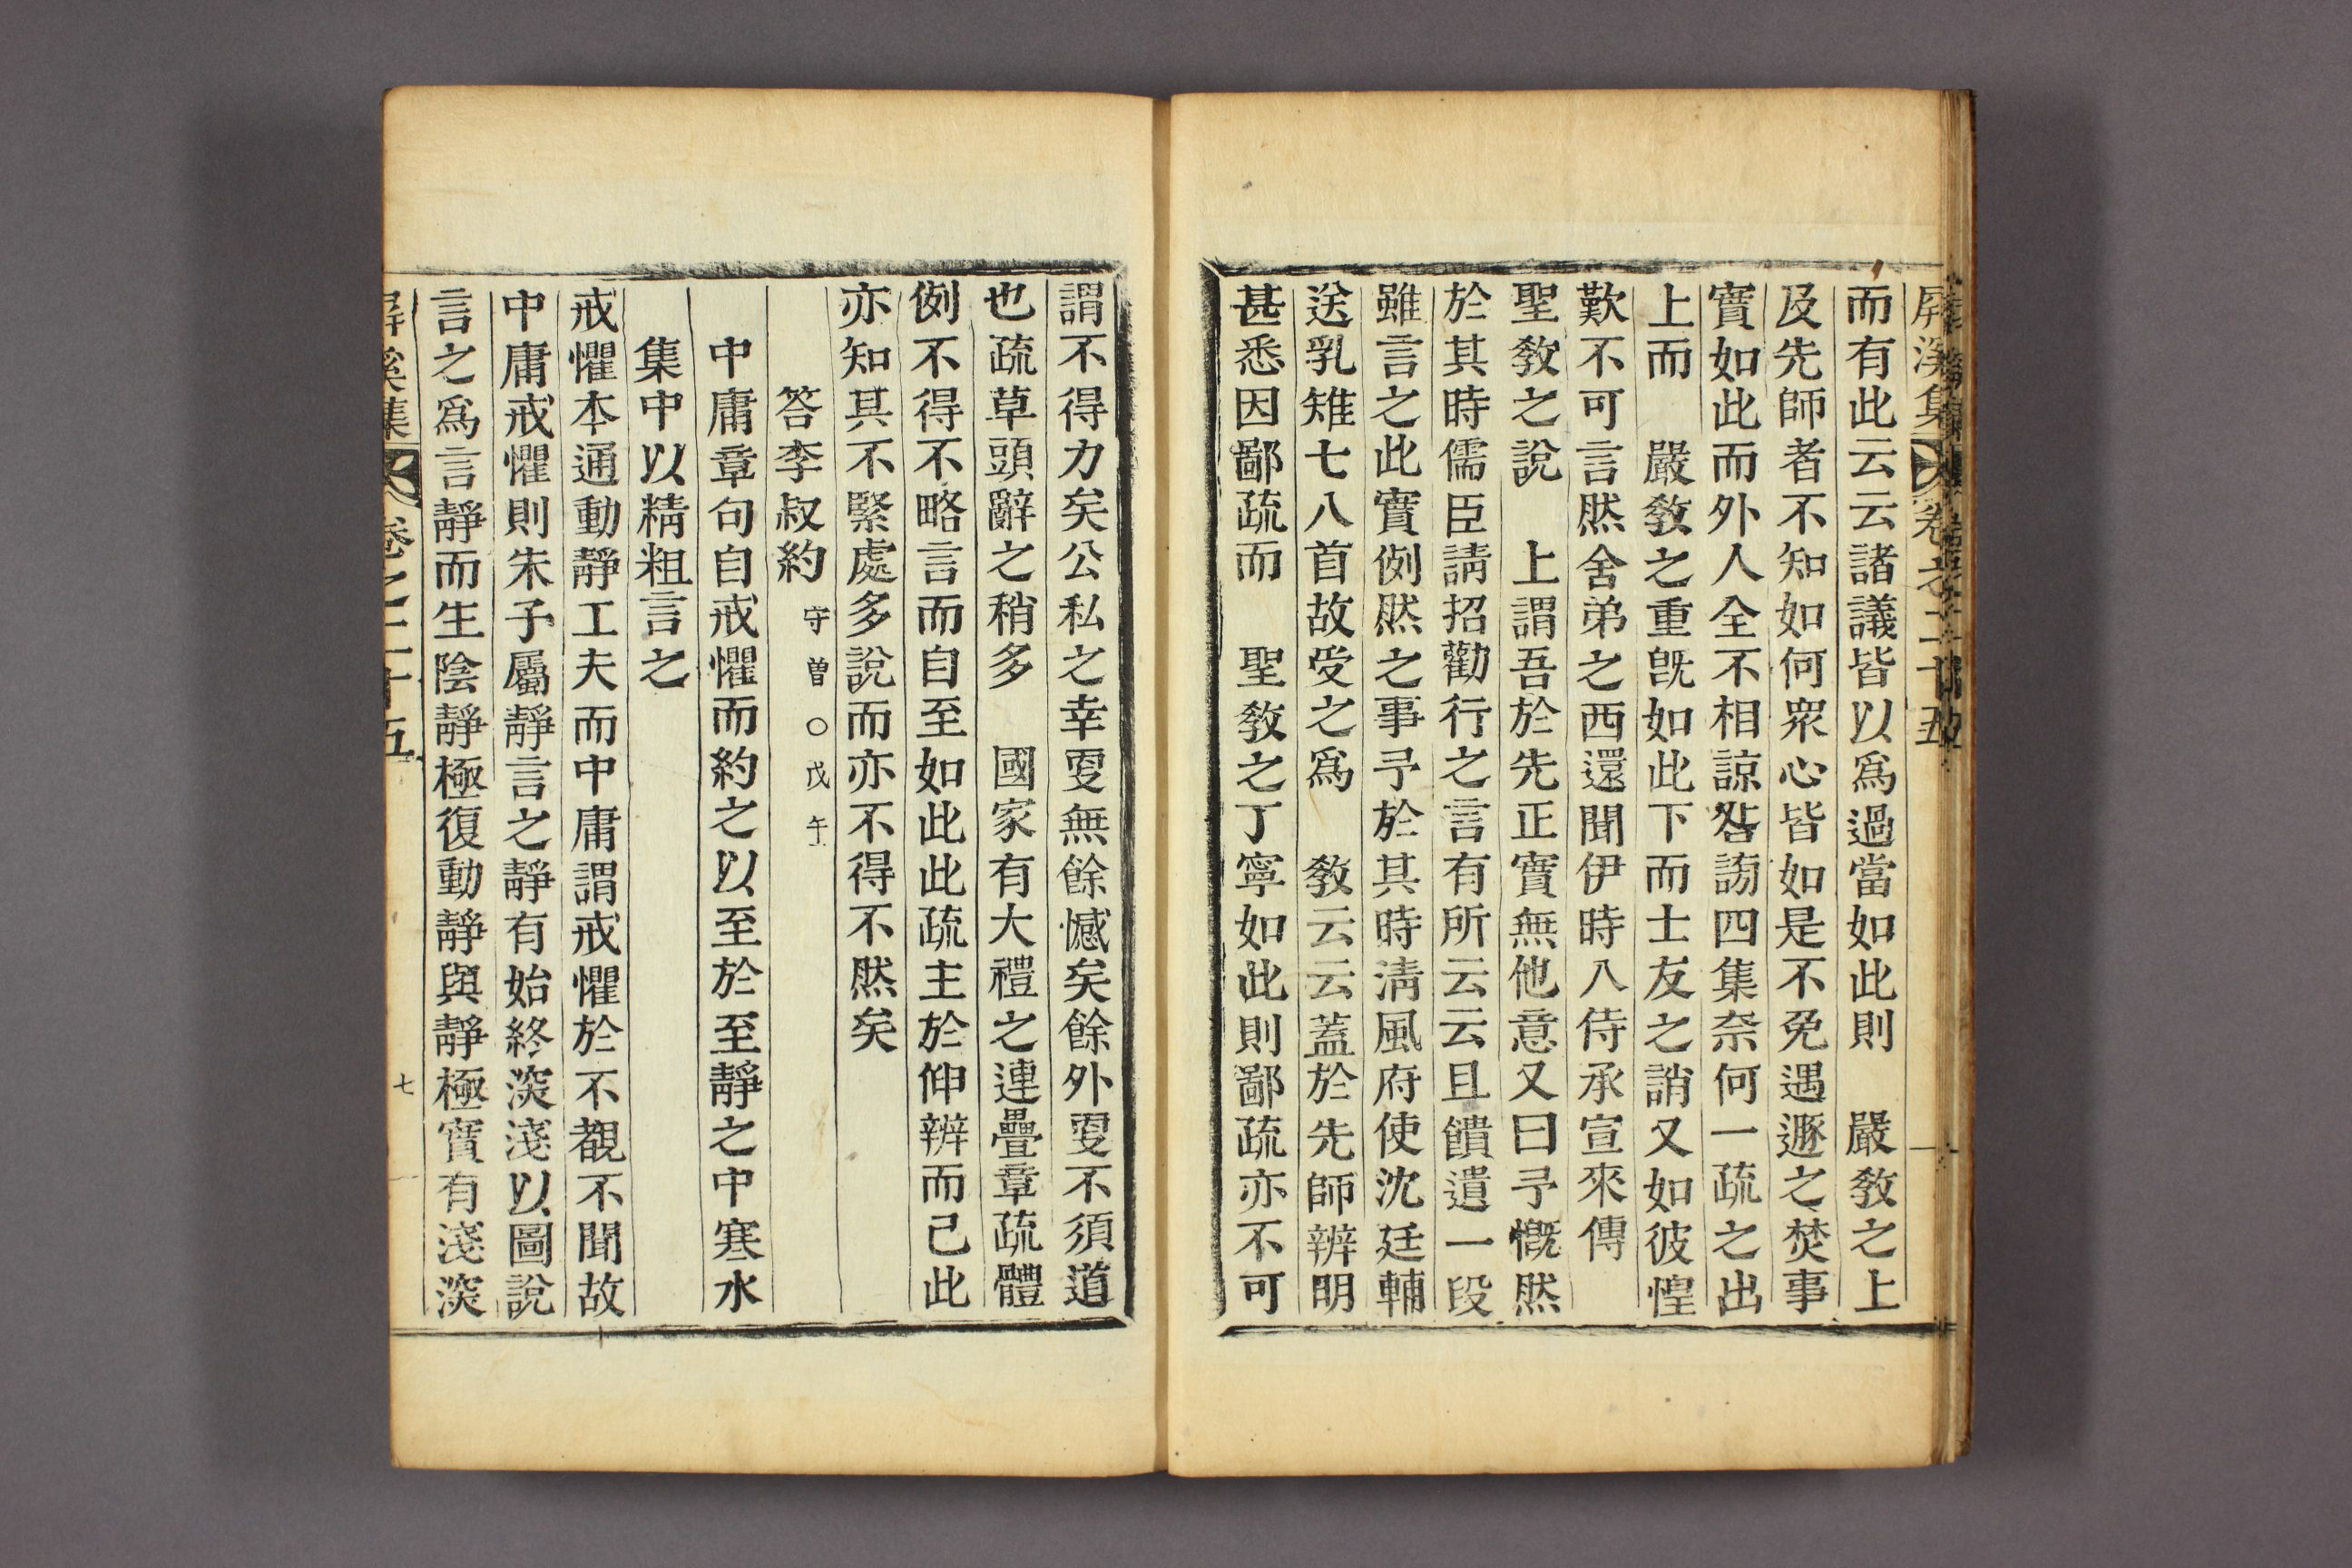 屛溪集 卷之二十五
而有此云云諸議皆以爲過當如此則　嚴敎之上
及先師者不知如何衆心皆如是不免遇遯之焚事
實如此而外人全不相諒咎謗四集奈何一疏之出
上而　嚴敎之重旣如此下而士友之誚又如彼惶
歎不可言然舍弟之西還聞伊時入侍承宣來傳
聖敎之說　上謂吾於先正實無他意又曰予慨然
於其時儒臣請招勸行之言有所云云且饋遺一段
雖言之此實例然之事予於其時淸風府使沈廷輔
送乳雉七八首故受之爲　敎云云蓋於先師辨明
甚悉因鄙疏而　聖敎之丁寧如此則鄙疏亦不可
謂不得力矣公私之幸更無餘憾矣餘外更不須道
也疏草頭辭之稍多　國家有大禮之連疊章疏體
例不得不略言而自至如此此疏主於伸辨而已此
亦知其不緊處多說而亦不得不然矣
答李叔約 守曾○戊午
中庸章句自戒懼而約之以至於至靜之中寒水
集中以精粗言之
戒懼本通動靜工夫而中庸謂戒懼於不覩不聞故
中庸戒懼則朱子屬靜言之靜有始終深淺以圖說
言之爲言靜而生陰靜極復動靜與靜極實有淺深
屛溪集 卷之二十五 七